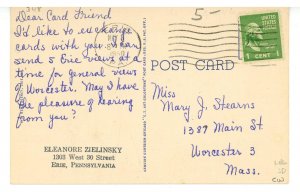 Dear Card Friend
I'd like to exchange
cards with you. Can
send 5 Erie views at a
time for general views
of Worcester. May I have
the pleasure of hearing
from you?
ELEANORE ZIELINSKY
1303 West 30 Street
ERIE, PENNSYLVANIA
5-
UNITED STATES
POSTAGE
1 CENT 1
POST CARD
Miss
Mary J. Stearns
1387 Main St.
Worcester 3
Mass.